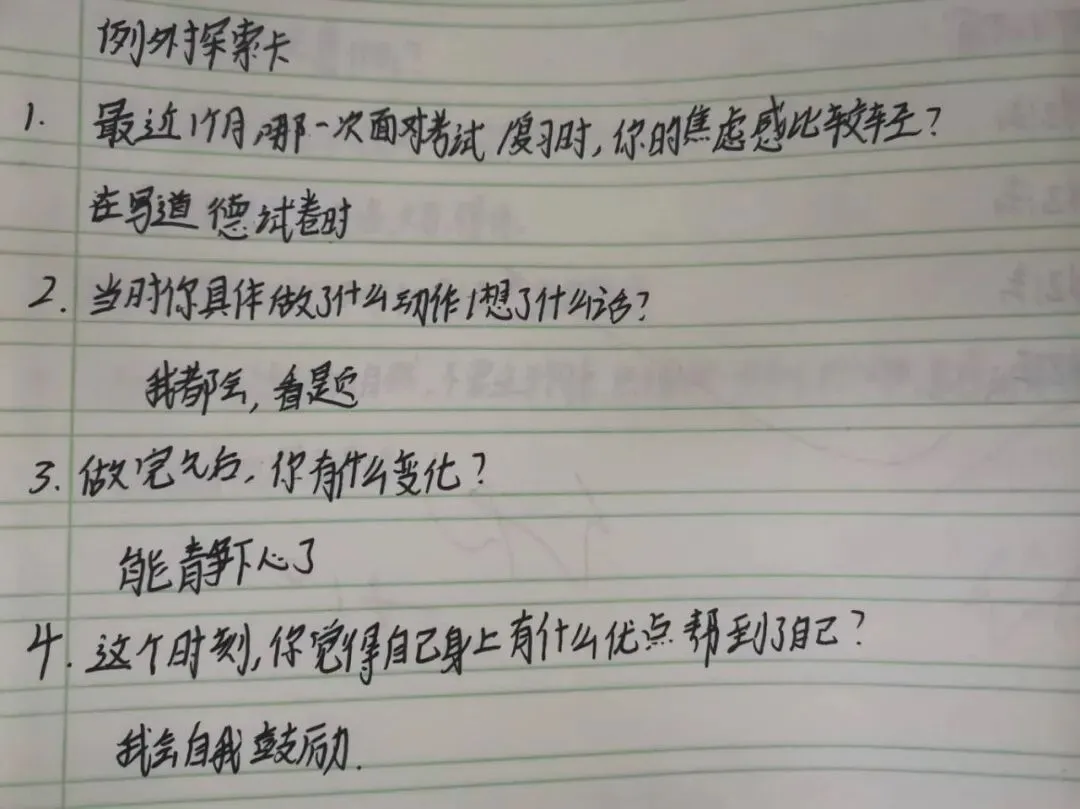 例外探索卡
1. 最近1个月哪一次面对考试/复习时,你的焦虑感比较轻?
在写道德试卷时
2. 当时你具体做了什么动作/想了什么话?
我都会,看题
3. 做完之后,你有什么变化?
能静下心了
4. 这个时刻,你觉得自己身上有什么优点帮到了自己?
我会自我鼓励.